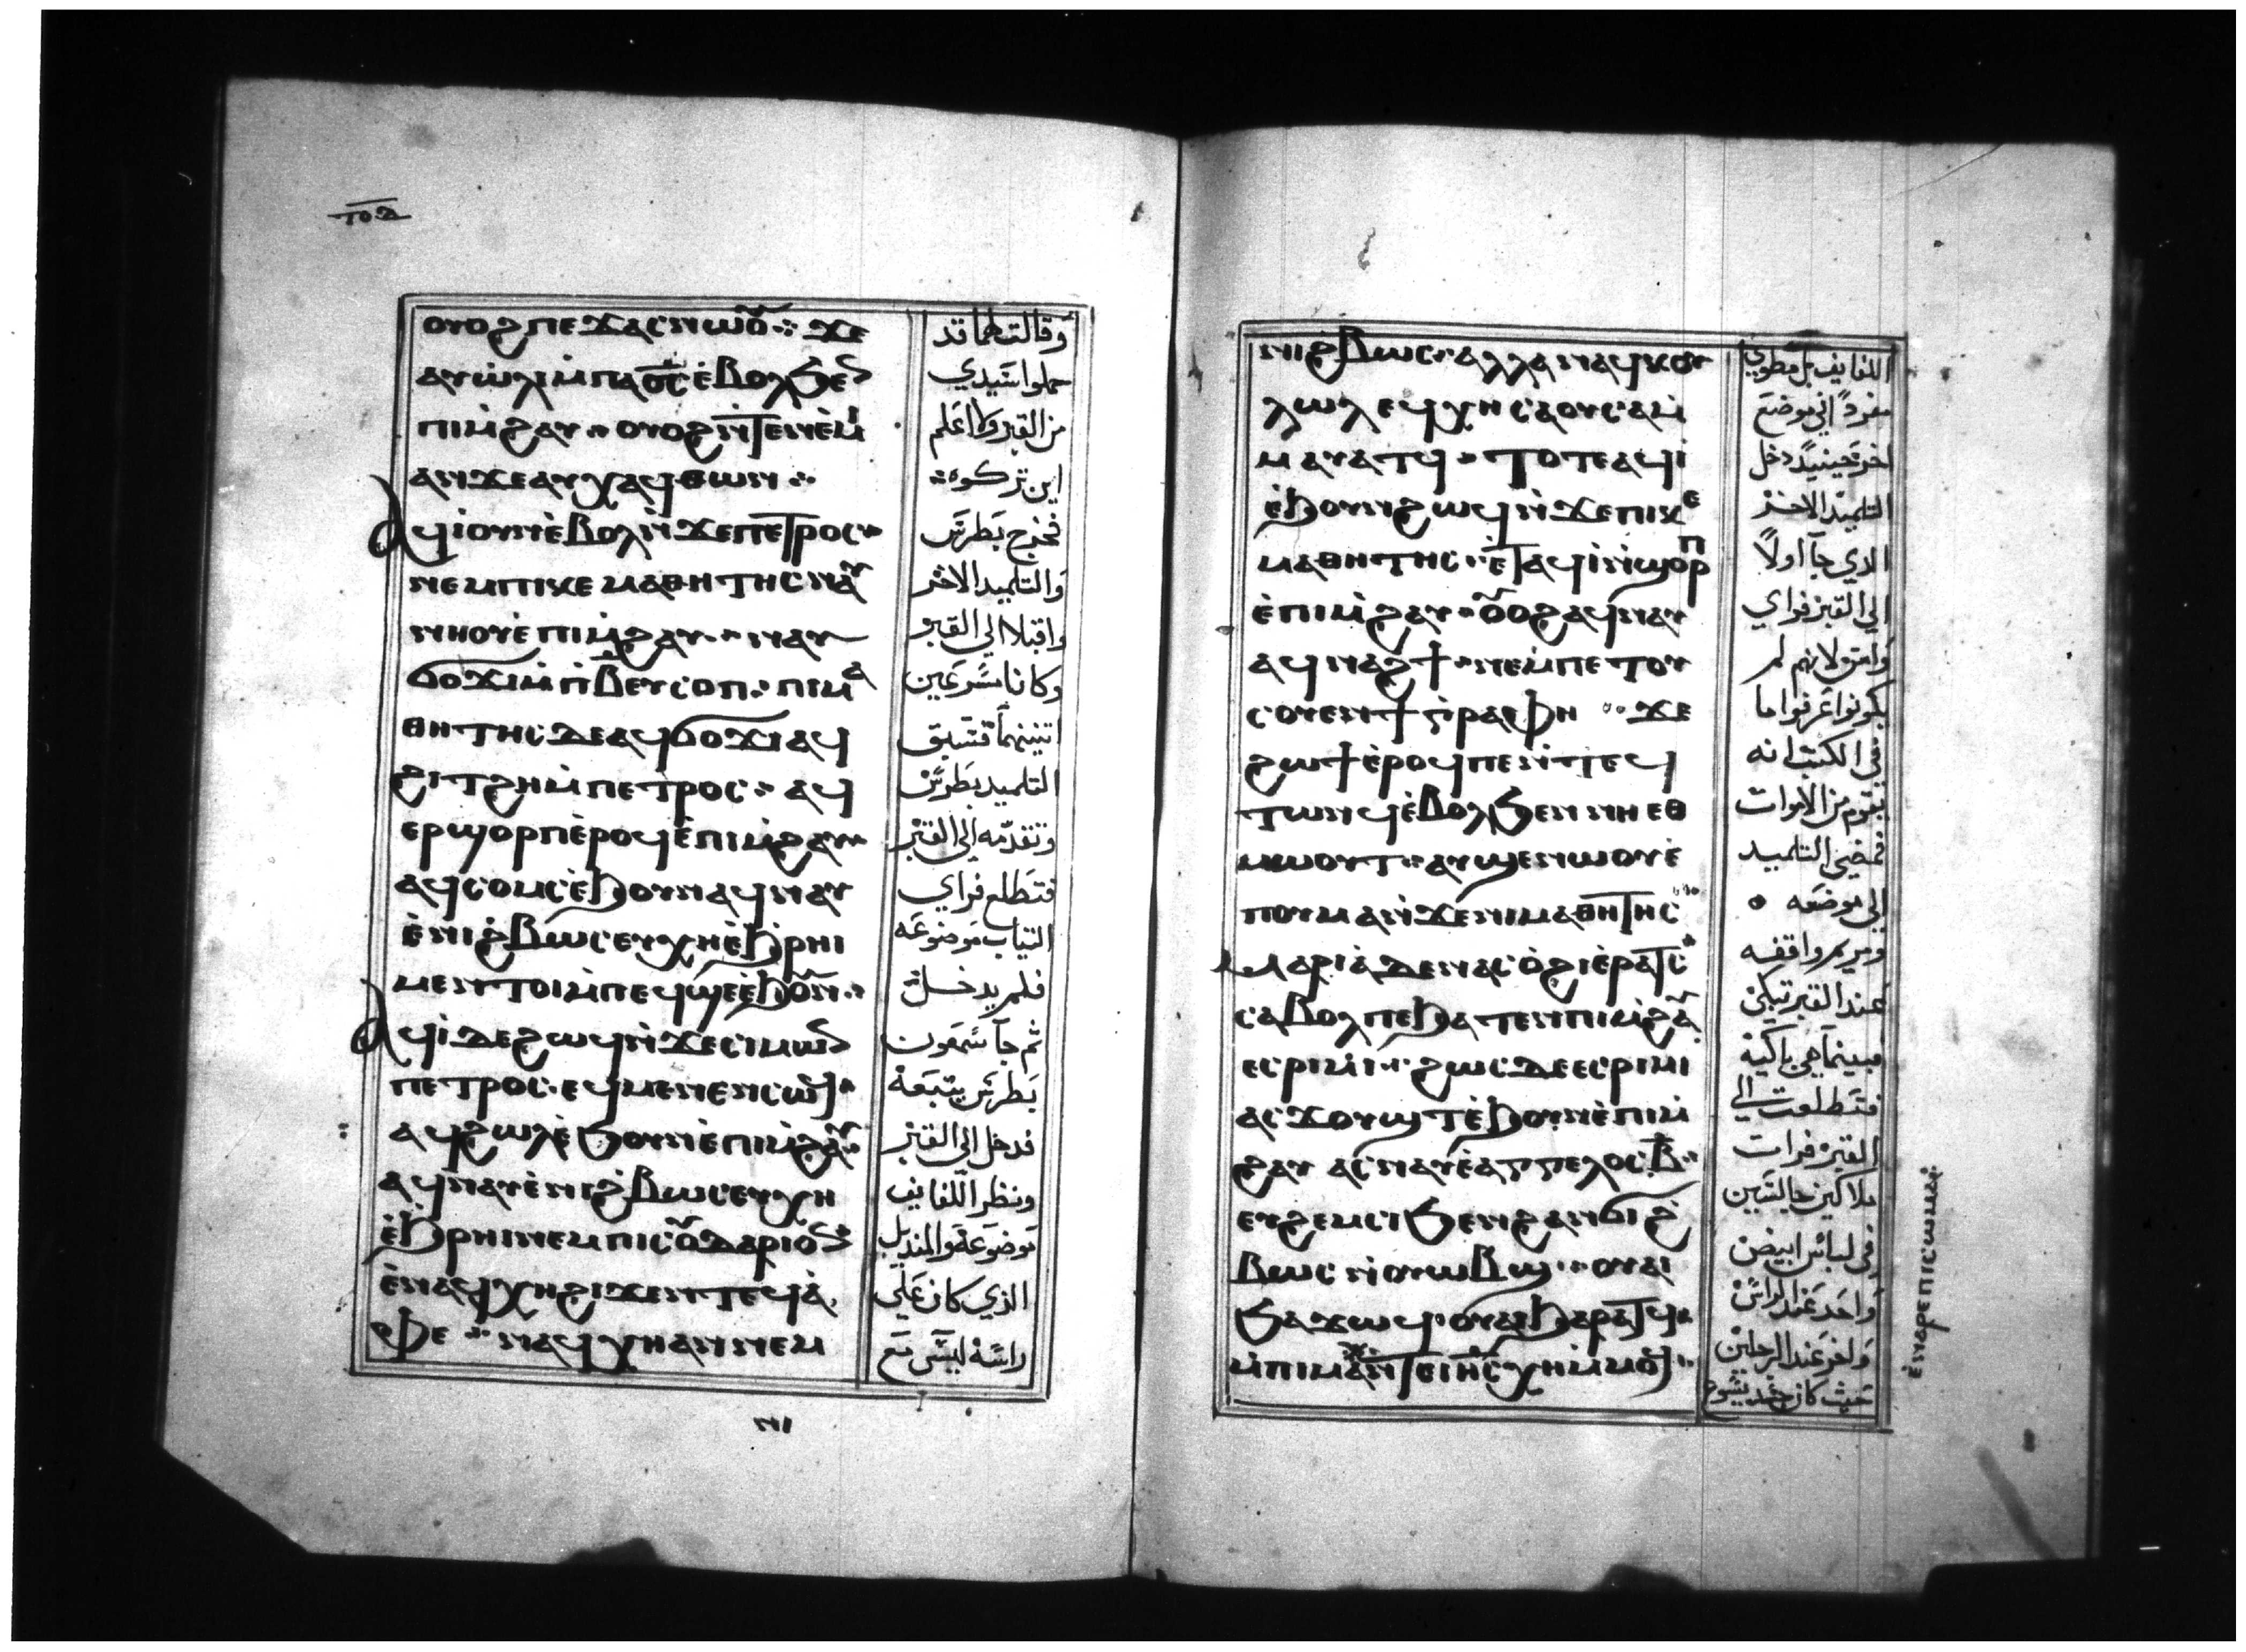 ⲟⲩⲟϩ ⲡⲉϫⲁⲥ ⲛⲱⲟⲩ ⲝⲉ
ⲁⲩⲱⲗⲓ ⲙ̀ⲡⲁⲟ̅ⲥ̅ ⲉ̀ⲃⲟⲗϧⲉⲛ
ⲡⲓⲙ̀ϩⲁⲩ ⲟⲩⲟϩ ⲛ̀ϯⲉⲙⲓ
ⲁⲛ ϫⲉ ⲁⲩⲭⲁϥ ⲑⲱⲛ
ⲁϥⲓ̀ ⲟⲩⲛ ⲉ̀ⲃⲟⲗ ⲛ̀ϫⲉ ⲡⲉⲧⲣⲟⲥ
ⲛⲉⲙ ⲡⲓⲕⲉⲙⲁⲑⲏⲧⲏⲥ ⲛⲁⲩ
ⲛⲏⲟⲩ ⲉ̀ⲡⲓⲙ̀ϩⲁⲩ ⲛⲁⲩ
ϭⲟϫⲓ ⲙ̀ⲡⲃ̅ ⲉⲩⲥⲟⲡ ⲡⲓⲙⲁ
ⲑⲏⲧⲏⲥ ⲇⲉ ⲁϥϭⲟϫⲓ ⲁϥ
ϩⲓⲧϩⲏ ⲙ̀ⲡⲉⲧⲣⲟⲥ ⲁϥ
ⲉⲣϣⲟⲣⲡ ⲉ̀ⲣⲟϥ ⲉ̀ⲡⲓⲙ̀ϩⲁⲩ
ⲁϥⲥⲟⲙⲥ ⲉ̀ϧⲟⲩⲛ ⲁϥⲛⲁⲩ
ⲉ̀ⲛⲓϩ̀ⲃⲱⲥ ⲉⲩⲭⲏ ⲉ̀ϧⲣⲏⲓ
ⲙⲉⲛⲧⲟⲓ ⲙ̀ⲡⲉϥϣⲉ ⲉ̀ϧⲟⲩⲛ
ⲁϥⲓ̀ ⲇⲉ ϩⲱϥ ⲛ̀ϫⲉ ⲥⲓⲙⲱⲛ
ⲡⲉⲧⲣⲟⲥ ⲉϥⲙⲉⲛⲉⲛⲥⲱϥ
ⲁϥϩⲱⲗ ⲉ̀ϧⲟⲩⲛ ⲉ̀ⲡⲓⲙ̀ϩⲁⲩ
ⲁϥⲛⲁⲩ ⲉ̀ⲛⲓϩ̀ⲃⲱⲥ ⲉⲩⲭⲏ
ⲉ̀ϧⲣⲏⲓ ⲛⲉⲙ ⲡⲓⲥⲟⲩⲇⲁⲣⲓⲟⲛ
ⲉ̀ⲛⲁϥⲭⲏ ϩⲓϫⲉⲛ ⲧⲉϥⲁ̀
ⲫⲉ ⲛⲁϥⲭⲏ ⲁⲛ ⲛⲉⲙ
ⲛⲓ
وقالت لهما قد
حملوا سيدي
من القبر ولا اعلم
اين تركوه
فخرج بطرس
والتلميد الاخر
واقبلا الي القبر
وكانا مسرعين
اتنينهما فسبق
التلميد بطرس
وتقدمه الي القبر
فتطلع فراي
التياب موضوعه
فلم يدخل
تم جا سمعون
بطرس يتبعه
فدخل الي القبر
ونظر اللفايف
موضوعه والمنديل
الذي كان علي
راسه ليس مع
ⲛⲓϩ̀ⲃⲱⲥ ⲁⲗⲗⲁ ⲛⲁϥⲕⲟⲩ
ⲗⲱⲗ ⲉϥⲭⲏ ⲥⲁⲟⲩⲥⲁ ⲙ̀
ⲙⲁⲩⲁⲧϥ ⲧⲟⲧⲉ ⲁϥⲓ̀
ⲉ̀ϧⲟⲩⲛ ϩⲱϥ ⲛ̀ϫⲉ ⲡⲓⲕⲉ
ⲙⲁⲑⲏⲧⲏⲥ ⲉ̀ⲧⲁϥⲓ̀ ⲛ̀ϣⲟⲣⲡ
ⲉ̀ⲡⲓⲙ̀ϩⲁⲩ ⲟⲩⲟϩ ⲁϥⲛⲁⲩ
ⲁϥⲛⲁϩϯ ⲛⲉ ⲙ̀ⲡⲉⲧⲟⲩ
ⲥⲟⲩⲉⲛ ϯⲅ̀ⲣⲁⲫⲏ ϫⲉ
ϩⲱϯ ⲉ̀ⲣⲟϥ ⲡⲉ ⲛ̀ⲧⲉϥ
ⲧⲱⲛϥ ⲉ̀ⲃⲟⲗϧⲉⲛ ⲛⲏⲉⲑ
ⲙⲱⲟⲩⲧ ⲁⲩϣⲉⲛⲱⲟⲩ ⲉ̀
ⲡⲟⲩⲙⲁ ⲛ̀ϫⲉ ⲛⲓⲙⲁⲑⲏⲧⲏⲥ
ⲙⲁⲣⲓⲁ̀ ⲇⲉ ⲛⲁⲥⲟ̀ϩⲓ ⲉ̀ⲣⲁⲧⲥ
ⲥⲁⲃⲟⲗ ⲡⲉ ϧⲁⲧⲉⲛ ⲡⲓⲙ̀ϩⲁⲩ
ⲉⲥⲣⲓⲙⲓ ϩⲱⲥ ⲇⲉ ⲉⲥⲣⲓⲙⲓ
ⲁⲥϫⲟⲩϣⲧ ⲉ̀ϧⲟⲩⲛ ⲉ̀ⲡⲓⲙ̀
ϩⲁⲩ ⲁⲥⲛⲁⲩ ⲉ̀ⲁⲅⲅⲉⲗⲟⲥ ⲃ̅
ⲉⲩϩⲉⲙⲥⲓ ϧⲉⲛ ϩⲁⲛϭⲓϩ̀
ⲃⲱⲥ ⲛ̀ⲟⲩⲱⲃϣ ⲟⲩⲁⲓ
ϧⲁϫⲱϥ ⲟⲩⲁⲓ ϧⲁⲣⲁⲧϥ
ⲙ̀ⲡⲓⲙⲁ ⲛ̀ⲧⲉ ⲓⲏ̅ⲥ̅ ⲭⲏ ⲙ̀ⲙⲟϥ
اللفايف بل مطوي
مفردًا في موضع
اخر فحينيد دخل
التلميد الاخر
الدي جا اولاً
الي القبر فراي
وامن لانهم لم
يكونوا عرفوا ما
في الكتب انه
يقوم من الاموات
فمضي التلميد
الي موضعه
ومريم واقفه
عند القبر تبكي
فبينما هي باكيه
فتطلعت الي
القبر فرات
ملاكين جالسين
في لباس ابيض
واحد عند الراس
واخر عند الرجلين
حيت كان جسد يسوع
ⲉ̀ⲛⲁⲣⲉ ⲡⲓⲥⲱⲙⲁ